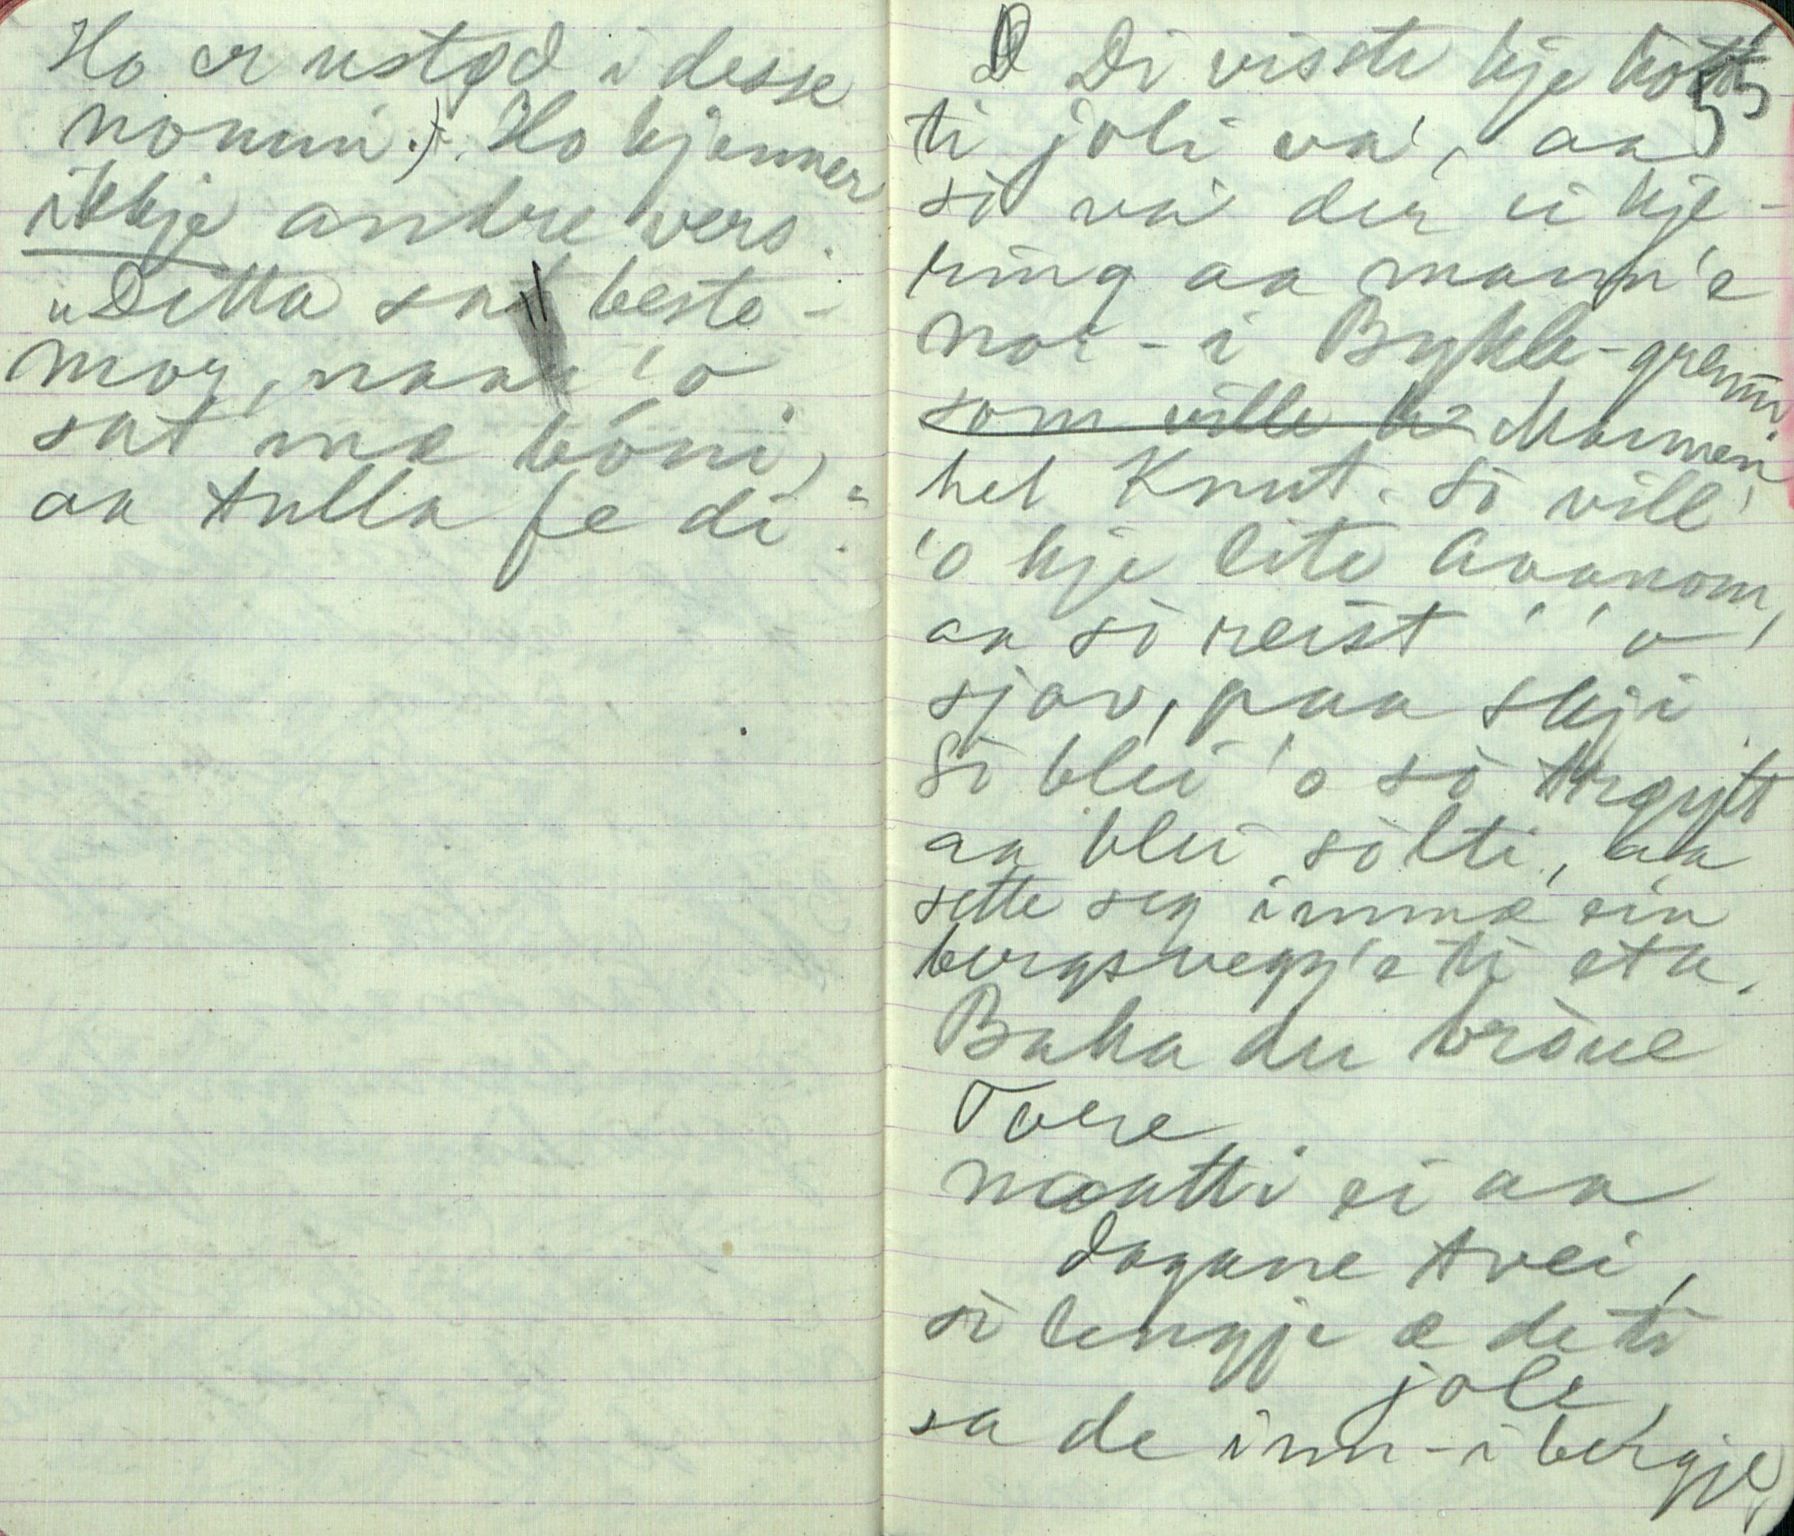 Ho er ustød i desse
nomni.) Ho kjenner
ikkje andre vers.
"Ditta sa beste-
mor, naar 'o
sat mæ bóni,
aa tulla fe di".
55
Di visste kje
ti joli va', aa
sò va' der ei kje-
ring aa mann'e
nor-i Bykle-grenni.
som ville k Mannen
het Knut. Sò vill'
'o kje lite Aanom,
aa sò reist' 'o'
sjav, paa skji.
Sò blei 'o sò trøytt
aa blei sòlti, aa
sette seg imme ein
bergsvegg'e ti eta.
Baka du bròue
Tore,
naatti ei aa
dagane tvei,
sò lengje æ de ti
jole,
sa de inn-i bergje,